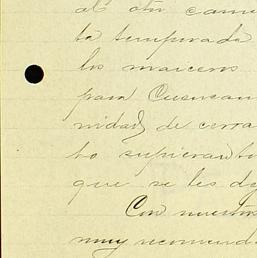 al otro cami
ta temporada
los maiceros
para Cusucan
nidad de cerra
ho supieran tu
que se les de
Con nuestros
muy recomenda